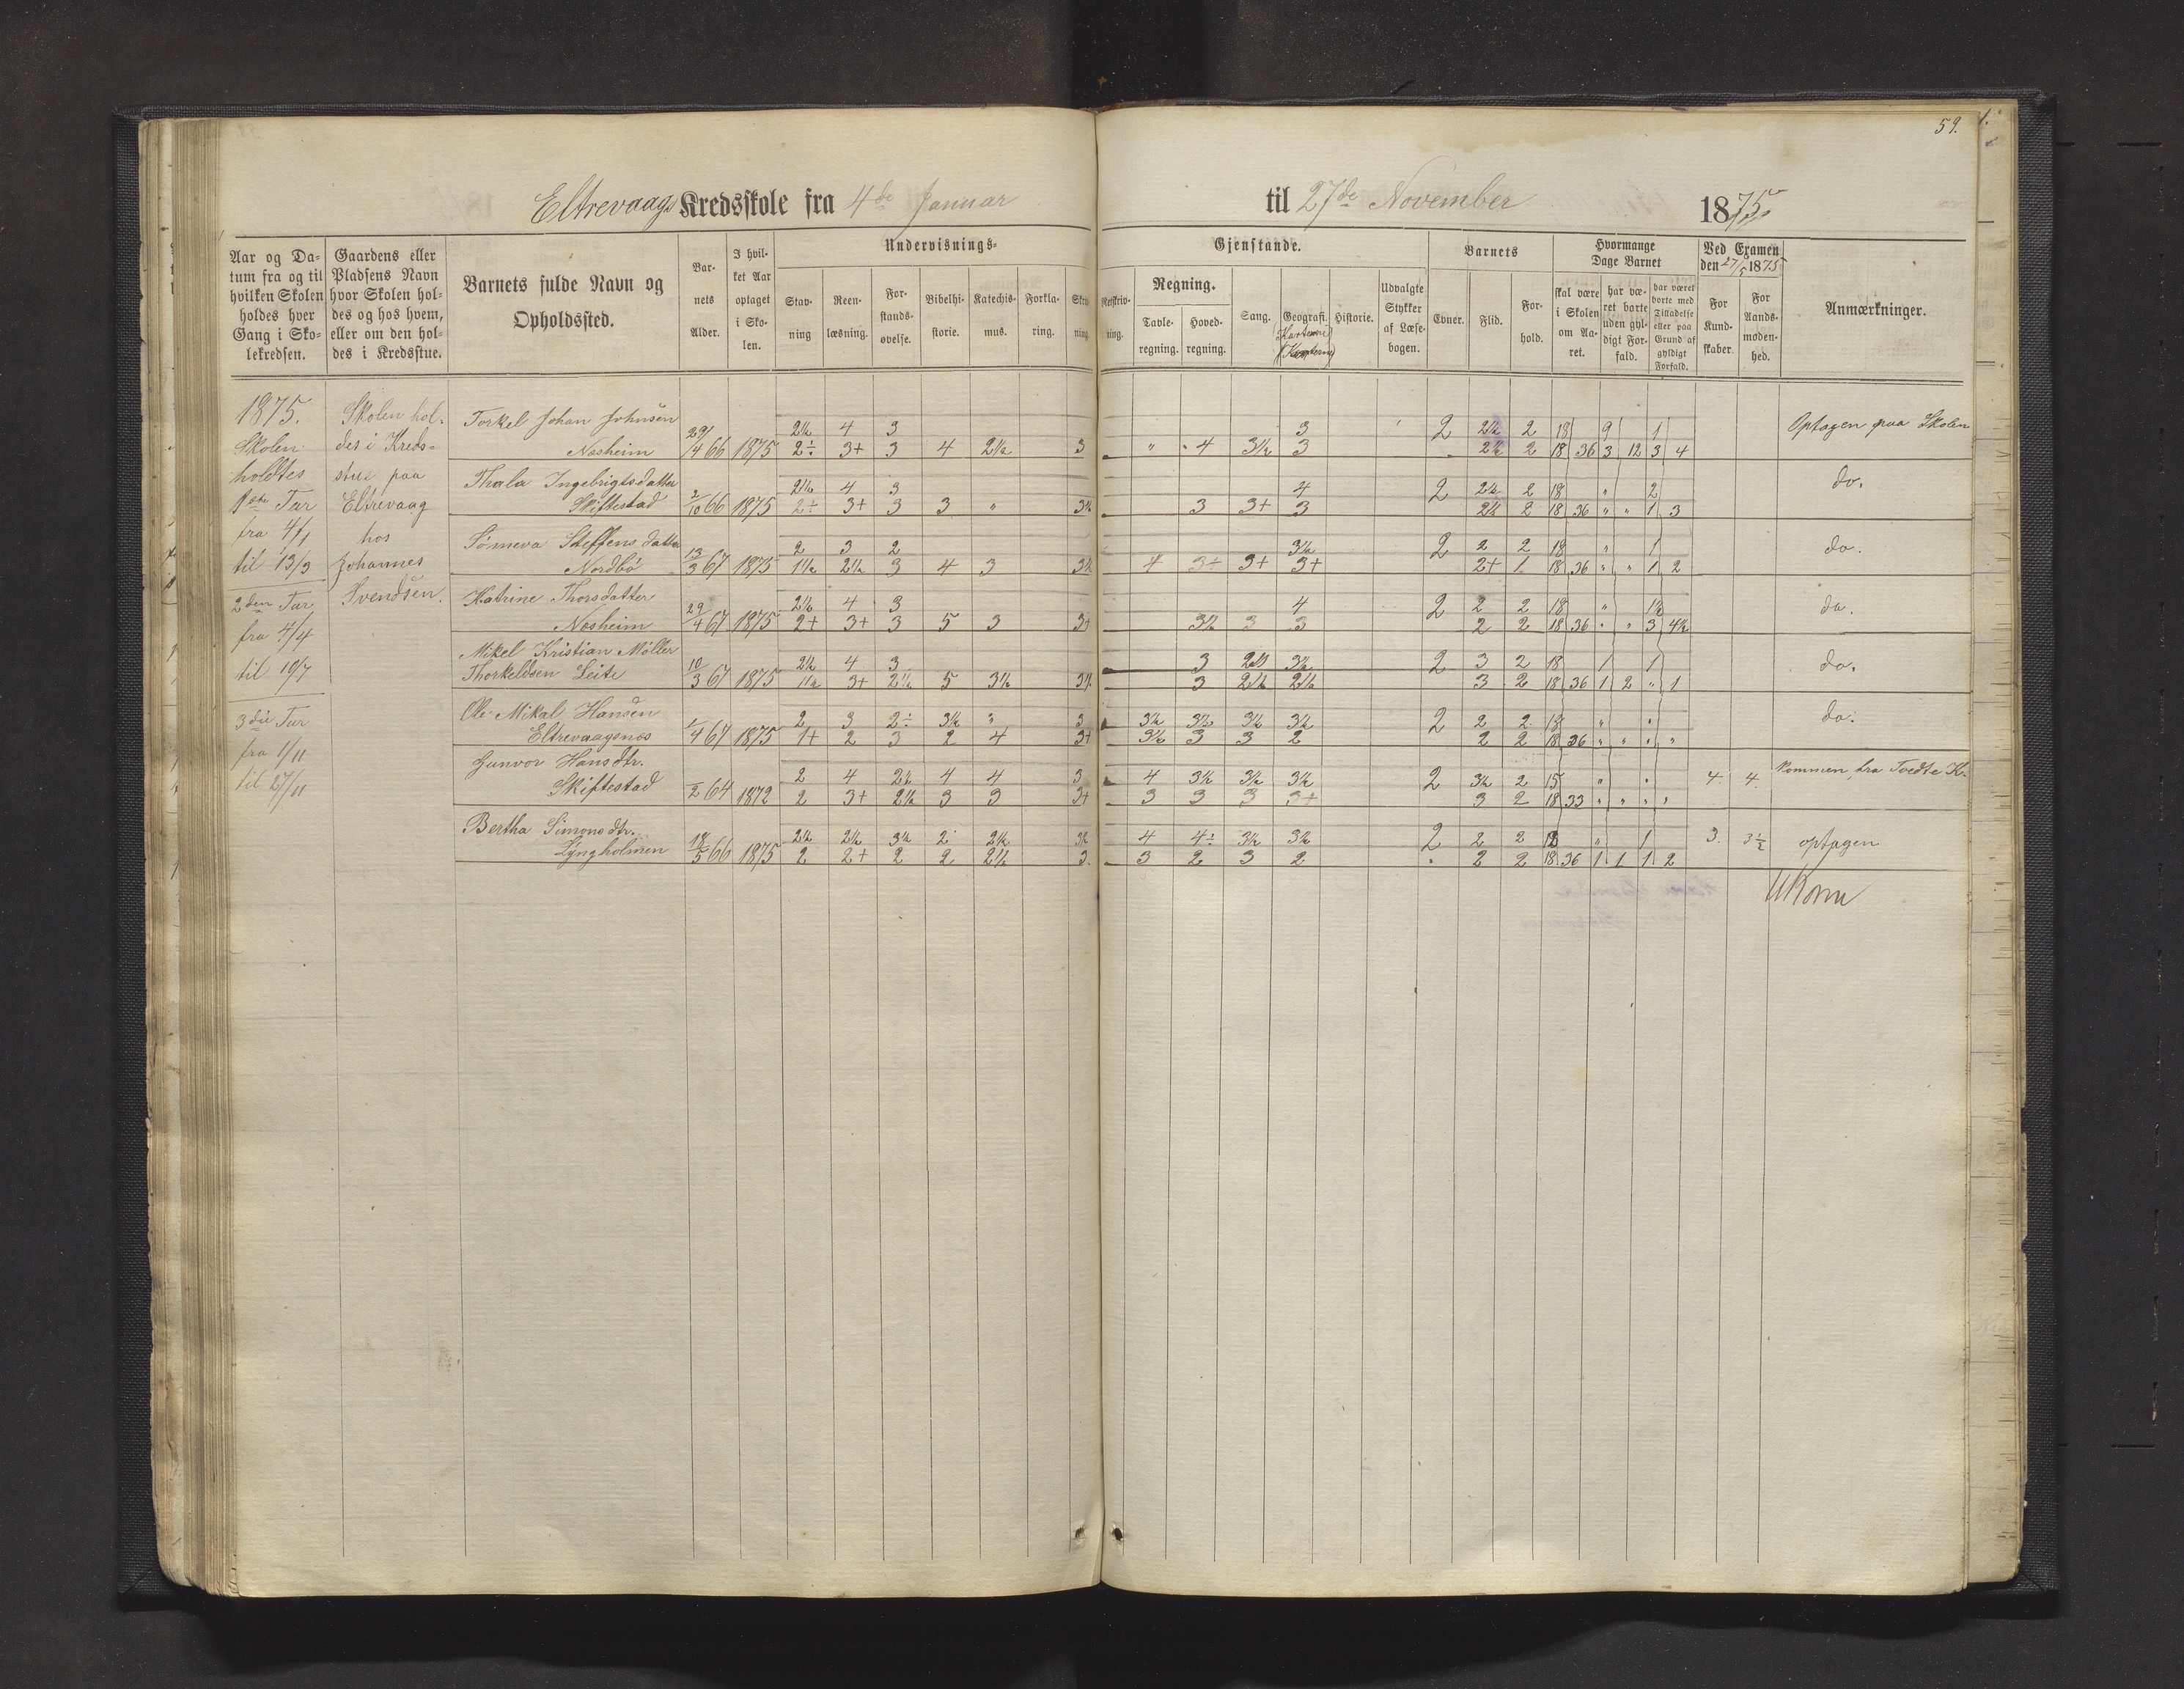 59.
Eltrevaags Kredsskole fra 4de Januar til 27de November 1875.
Aar og Da-
tum fra og til
hvilken Skolen
holdes hver
Gang i Sko-
lekredsen.
Gaardens eller
Pladsens Navn
hvor Skolen hol-
des og hos hvem,
eller om den hol-
des i Kredsstue.
Barnets fulde Navn og
Opholdssted.
Bar-
nets
Alder.
I hvil-
ket Aar
optaget
i Sko-
len.
Undervisnings-
Stav-
ning
Reen-
læsning.
For-
stands-
øvelse.
Bibelhi-
storie.
Katechis-
mus.
Forkla-
ring.
Skriv-
ning.
Gjenstande.
Retskriv-
ning.
Regning.
Tavle-
regning.
Hoved-
regning.
Sang.
Geografi.
Historie.
Udvalgte
Stykker
af Læse-
bogen.
Barnets
Evner.
Flid.
For-
hold.
Hvormange
Dage Barnet
skal være
i Skolen
om Aa-
ret.
har væ-
ret borte
uden gyl-
digt For-
fald.
har været
borte med
Tilladelse
eller paa
Grund af
gyldigt
Forfald.
Ved Examen
den 27/5 1875
For
Kund-
skaber.
For
Aands-
moden-
hed.
Anmærkninger.
1875.
Skolen
holdtes
1ste Tur
fra 4/1
til 13/3
2den Tur
fra 4/4
til 10/7
3die Tur
fra 1/11
til 27/11
Skolen hol-
des i Kreds-
stue paa
Eltrevaag
hos
Johannes
Svendsen.
Torkel Johan Johnsen 2½ 4 3 3 2 2½ 2 18 9 1 Optagen paa Skolen
Nosheim 29/4 66 1875 2÷ 3+ 3 4 2½ 3 " 4 3½ 3 2½ 2 18 36 3 12 3 4
Thala Ingebrigtsdatter 2½ 4 3 4 2 2½ 2 18 " 2 do.
Skiftestad 2/10 66 1875 2+ 3+ 3 3 " 3½ 3 3+ 3 2½ 2 18 36 " " 1 3
Sønneva Steffensdatter 2 3 2 3½ 2 2 2 18 " 1 do.
Nordbø 13/3 67 1875 1½ 2½ 3 4 3 3½ 4 3+ 3+ 3+ 2+ 1 18 36 " " 1 2
Katrine Thorsdatter 2½ 4 3 4 2 2 2 18 " 1½ do.
Nosheim 29/4 67 1875 2+ 3+ 3 5 3 3+ 3½ 3 3 2 2 18 36 " " 3 4½
Mikel Kristian Møller 2½ 4 3 3 2½ 3½ 2 3 2 18 1 1 do.
Thorkeldsen Leite 10/3 67 1875 1½ 3+ 2½ 5 3½ 3½ 3 2½ 2½ 3 2 18 36 1 2 " 1
Ole Mikal Hansen 2 3 2÷ 3½ " 3 3½ 3½ 3½ 3½ 2 2 2 18 " " do.
Eltrevaagsnes 1/4 67 1875 1+ 2 3 2 4 3+ 3½ 3 3 2 2 2 18 36 " " " "
Gunvor Hansdtr. 2 4 2½ 4 4 3 4 3½ 3½ 3½ 2 3½ 2 15 " " 4. 4. Kommen fra Tvedte K.
Skiftestad 1/2 64 1872 2 3+ 2½ 3 3 3+ 3 3 3 3+ 3 2 18 33 " " " "
Bertha Simonsdtr. 2½ 2½ 3½ 2 2½ 3½ 4 4÷ 3½ 3½ 2 2 2 18 " 1 3. 3½ optagen
Lyngholmen 18/5 66 1875 2 2+ 2 2 2½ 3. 3 2 3 2 2 2 18 36 1 1 1 2